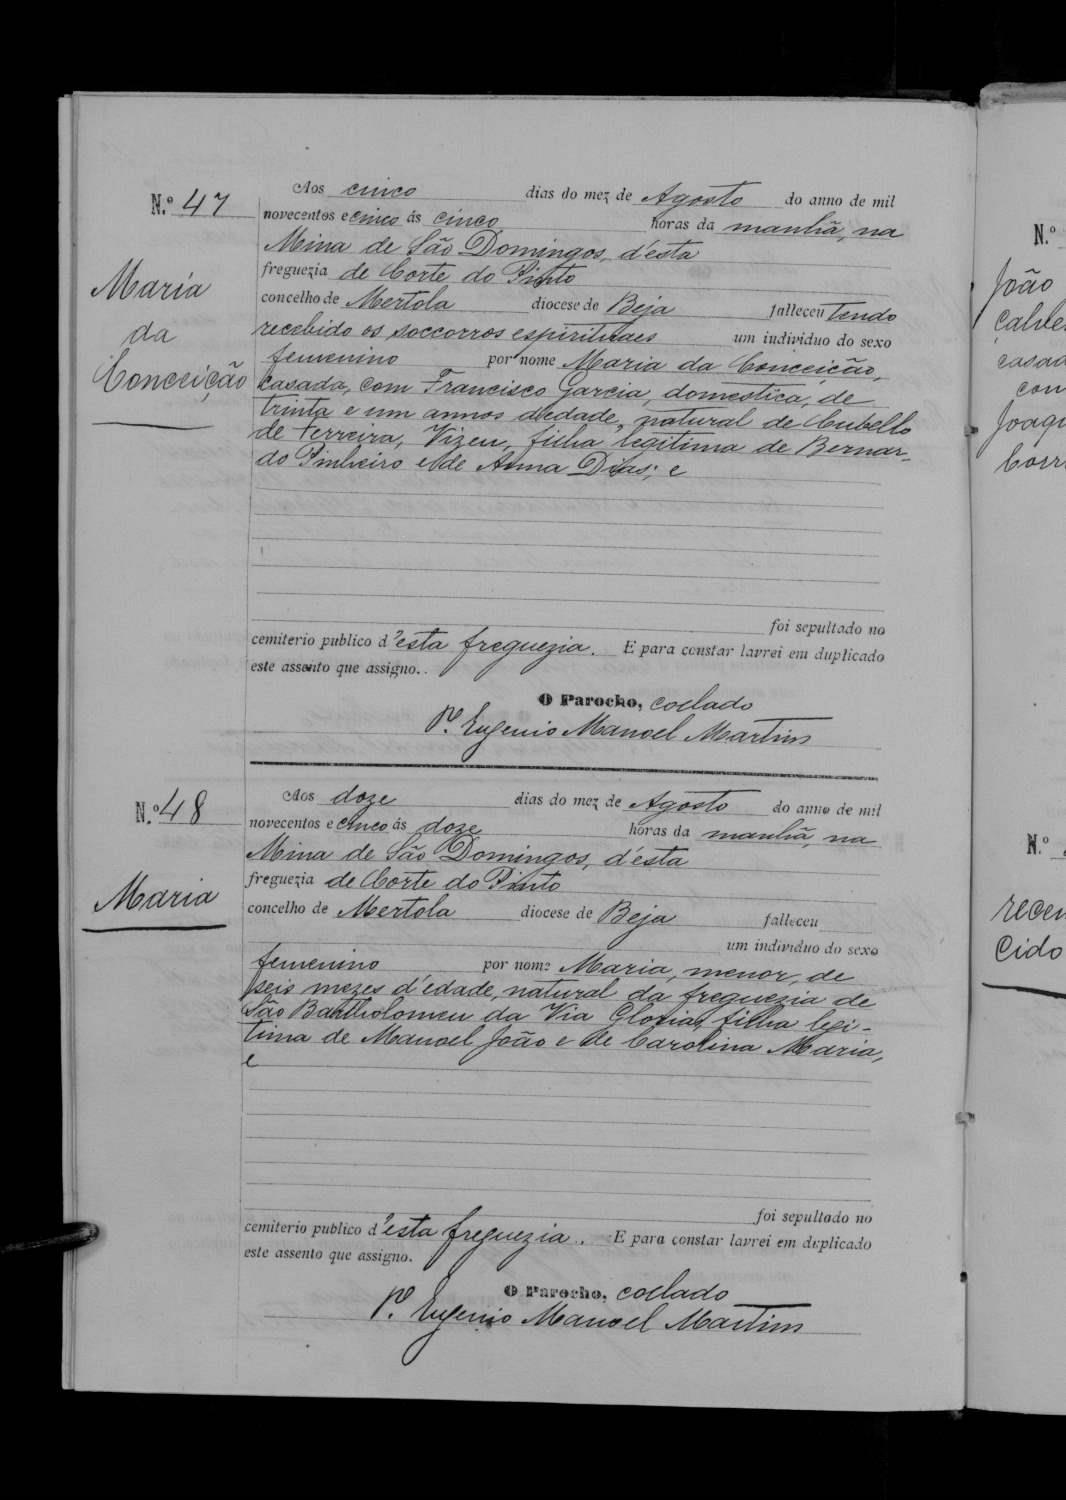 N.º 47
Maria
da
Conceição
Aos cinco dias do mez de Agosto do anno de mil
novecentos e cinco ás cinco horas da manhã, na
Mina de São Domingos, d'esta
freguezia de Corte do Pinto
concelho de Mertola diocese de Beja falleceu tendo
recebido os soccorros espirituaes um individuo do sexo
femenino por nome Maria da Conceição,
casada, com Francisco Garcia, domestica, de
trinta e um annos d'edade, natural de Cubello
de Ferreira, Vizeu, filha legitima de Bernar-
do Pinheiro e de Anna Dias; e
foi sepultado no
cemiterio publico d'esta freguezia. E para constar lavrei em duplicado
este assento que assigno.
O Parocho, collado
P.e Eugenio Manoel Martins
N.º 48
Maria
Aos doze dias do mez de Agosto do anno de mil
novecentos e cinco ás doze horas da manhã, na
Mina de São Domingos, d'esta
freguezia de Corte do Pinto
concelho de Mertola diocese de Beja falleceu
um individuo do sexo
femenino por nome Maria, menor, de
seis mezes d'edade, natural da freguezia de
São Bartholomeu da Via Gloria, filha legi-
tima de Manoel João e de Carolina Maria,
e
foi sepultado no
cemiterio publico d'esta freguezia. E para constar lavrei em duplicado
este assento que assigno.
O Parocho, collado
P.e Eugenio Manoel Martins
N.º
João
casad
con
Joaqu
Corr
N.º
recem
cido